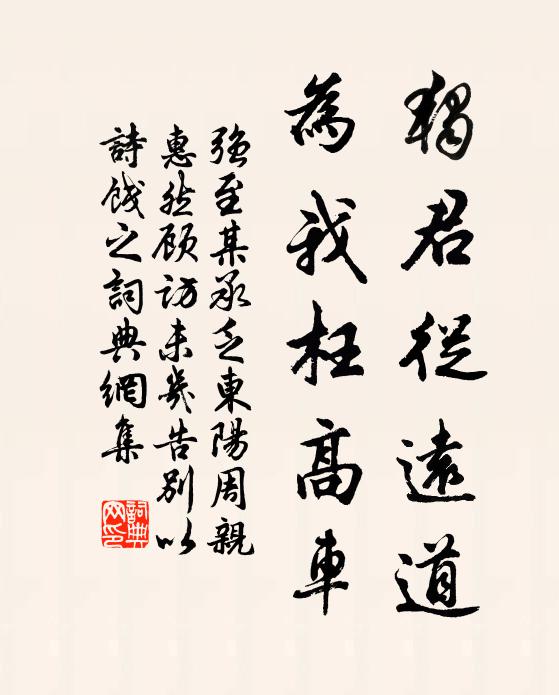 獨君從遠道
為我枉高車
强至某承乏東陽周親
惠然顧访未幾告别以
詩餞之詞典網集
詞典网印